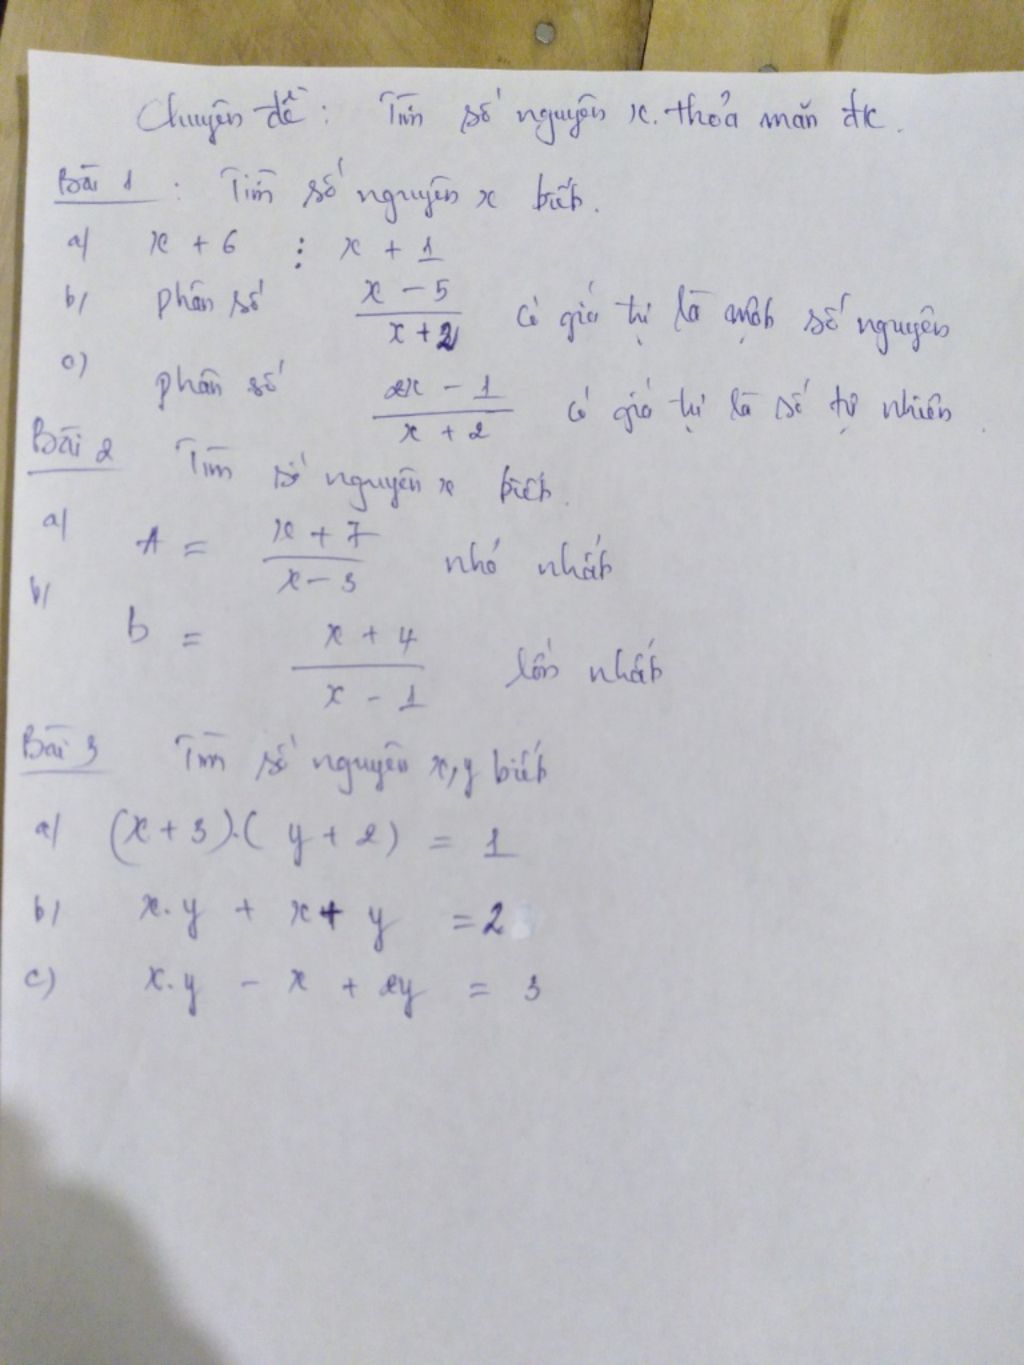 Chuyên đề: Tìm số nguyên x. thỏa mãn đk.
Bài 1: Tìm số nguyên x biết.
a) x + 6 ⋮ x + 1
b) phân số (x - 5)/(x + 2) có giá trị là một số nguyên
c) phân số (2x - 1)/(x + 2) có giá trị là số tự nhiên.
Bài 2 Tìm số nguyên x biết.
a) A = (x + 7)/(x - 3) nhỏ nhất
b) b = (x + 4)/(x - 1) lớn nhất
Bài 3 Tìm số nguyên x, y biết
a) (x + 3).(y + 2) = 1
b) x.y + x + y = 2
c) x.y - x + 2y = 3